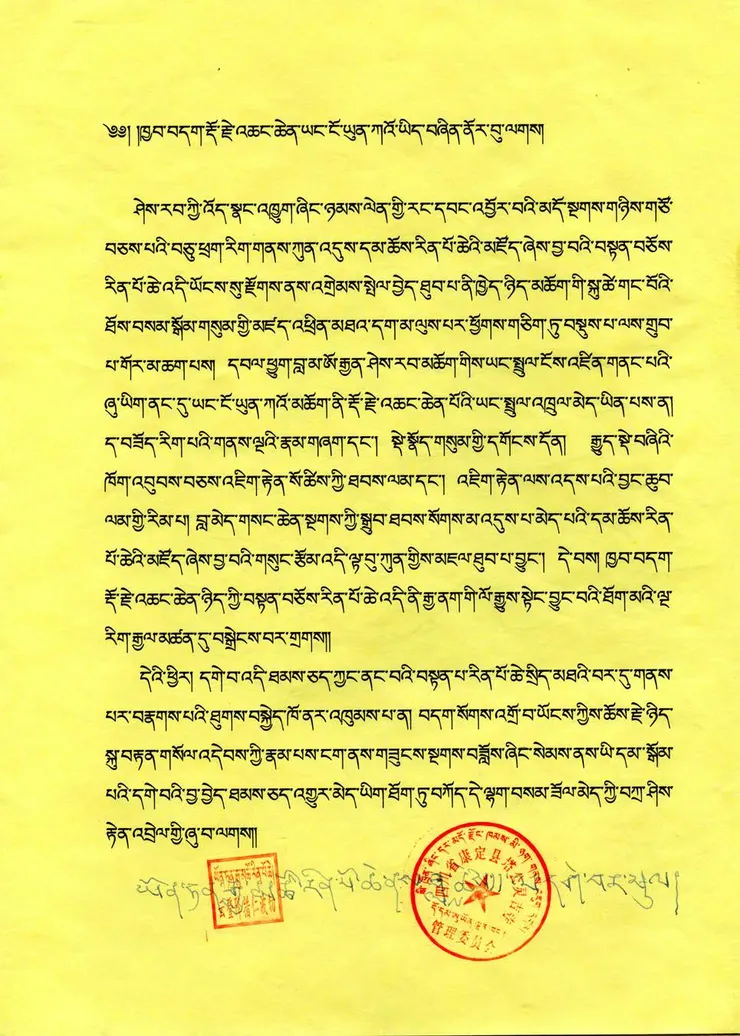 ༄༅། །ཁྱབ་བདག་རྡོ་རྗེ་འཆང་ཆེན་ཡང་ངོ་ཡུན་ཀའོ་ཡིད་བཞིན་ནོར་བུ་ལགས།
ཤེས་རབ་ཀྱི་འོད་སྣང་འཁྱུག་ཞིང་ཉམས་ལེན་གྱི་རང་དབང་འབྱོར་བའི་མདོ་སྔགས་གཉིས་གཙོ་
བཅས་པའི་བཅུ་ཕྲག་རིག་གནས་ཀུན་འདུས་དམ་ཆོས་རིན་པོ་ཆེའི་མཛོད་ཞེས་བྱ་བའི་བསྟན་བཅོས་
རིན་པོ་ཆེ་འདི་ཡོངས་སུ་རྫོགས་ནས་འགྲེམས་སྤེལ་བྱེད་ཐུབ་པ་ནི་ཁྱེད་ཉིད་མཆོག་གི་སྐུ་ཚེ་གང་བོའི་
ཐོས་བསམ་སྒོམ་གསུམ་གྱི་མཛད་འཕྲིན་མཐའ་དག་མ་ལུས་པར་ཕྱོགས་གཅིག་ཏུ་བསྡུས་པ་ལས་གྲུབ་
པ་གོར་མ་ཆག་པས། དབལ་ཕྱུག་བླ་མ་ཨོ་རྒྱན་ཤེས་རབ་མཆོག་གིས་ཡང་སྤྲུལ་ངོས་འཛིན་གནང་པའི་
ཞུ་ཡིག་ནང་དུ་ཡང་ངོ་ཡུན་ཀའོ་མཆོག་ནི་རྡོ་རྗེ་འཆང་ཆེན་པོའི་ཡང་སྤྲུལ་འཁྲུལ་མེད་ཡིན་པས་ན།
ད་བཟོད་རིག་པའི་གནས་ལྔའི་རྣམ་གཞག་དང་། སྡེ་སྣོད་གསུམ་གྱི་དགོངས་དོན། རྒྱུད་སྡེ་བཞིའི་
ཁོག་འབུབས་བཅས་འཇིག་རྟེན་སོ་ཚིས་ཀྱི་ཐབས་ལམ་དང་། འཇིག་རྟེན་ལས་འདས་པའི་བྱང་ཆུབ་
ལམ་གྱི་རིམ་པ། བླ་མེད་གསང་ཆེན་སྔགས་ཀྱི་སྒྲུབ་ཐབས་སོགས་མ་འདུས་པ་མེད་པའི་དམ་ཆོས་རིན་
པོ་ཆེའི་མཛོད་ཞེས་བྱ་བའི་གསུང་རྩོམ་འདི་ལྟ་བུ་ཀུན་གྱིས་མཇལ་ཐུབ་པ་བྱུང་། དེ་བས། ཁྱབ་བདག་
རྡོ་རྗེ་འཆང་ཆེན་ཉིད་ཀྱི་བསྟན་བཅོས་རིན་པོ་ཆེ་འདི་ནི་རྒྱ་ནག་གི་ལོ་རྒྱུས་སྟེང་བྱུང་བའི་ཐོག་མའི་ལྔ་
རིག་རྒྱལ་མཚན་དུ་བསྒྲེངས་བར་གྲགས།།
དེའི་ཕྱིར། དགེ་བ་འདི་ཐམས་ཅད་ཀྱང་ནང་བའི་བསྟན་པ་རིན་པོ་ཆེ་སྲིད་མཐའི་བར་དུ་གནས་
པར་བརྣགས་པའི་ཐུགས་བསྐྱེད་ཁོ་ནར་འཁུམས་པ་ན། བདག་སོགས་འགྲོ་བ་ཡོངས་ཀྱིས་ཆོས་རྗེ་ཉིད་
སྐུ་བརྟན་གསོལ་འདེབས་ཀྱི་རྣམ་པས་ངག་ནས་གཟུངས་སྔགས་བཟློས་ཞིང་སེམས་ནས་ཡི་དམ་སྒོམ་
པའི་དགེ་བའི་བྱ་བྱེད་ཐམས་ཅད་འགྱུར་མེད་ཡིག་ཐོག་ཏུ་བཀོད་དེ་ལྷག་བསམ་ཟོལ་མེད་ཀྱི་བཀྲ་ཤིས་
རྟེན་འབྲེལ་གྱི་ཞུ་བ་ལགས།།
省康定县
管理委员会